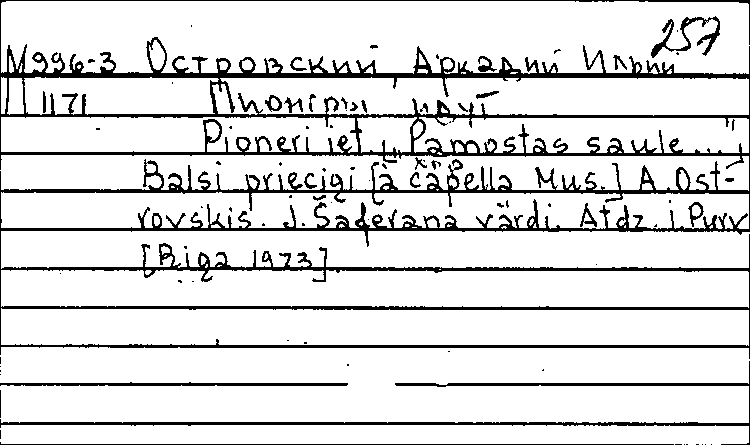 257
М996-3 Островский, Аркадий Ильич
П 1171 Пионеры идут
Pioneri iet. „Pamostas saule..."
Balsi priecīgi [à capella Mus.] A. Ost-
rovskis. J. Šaferana vārdi. Atdz. i. Purv
[Riga 1973].